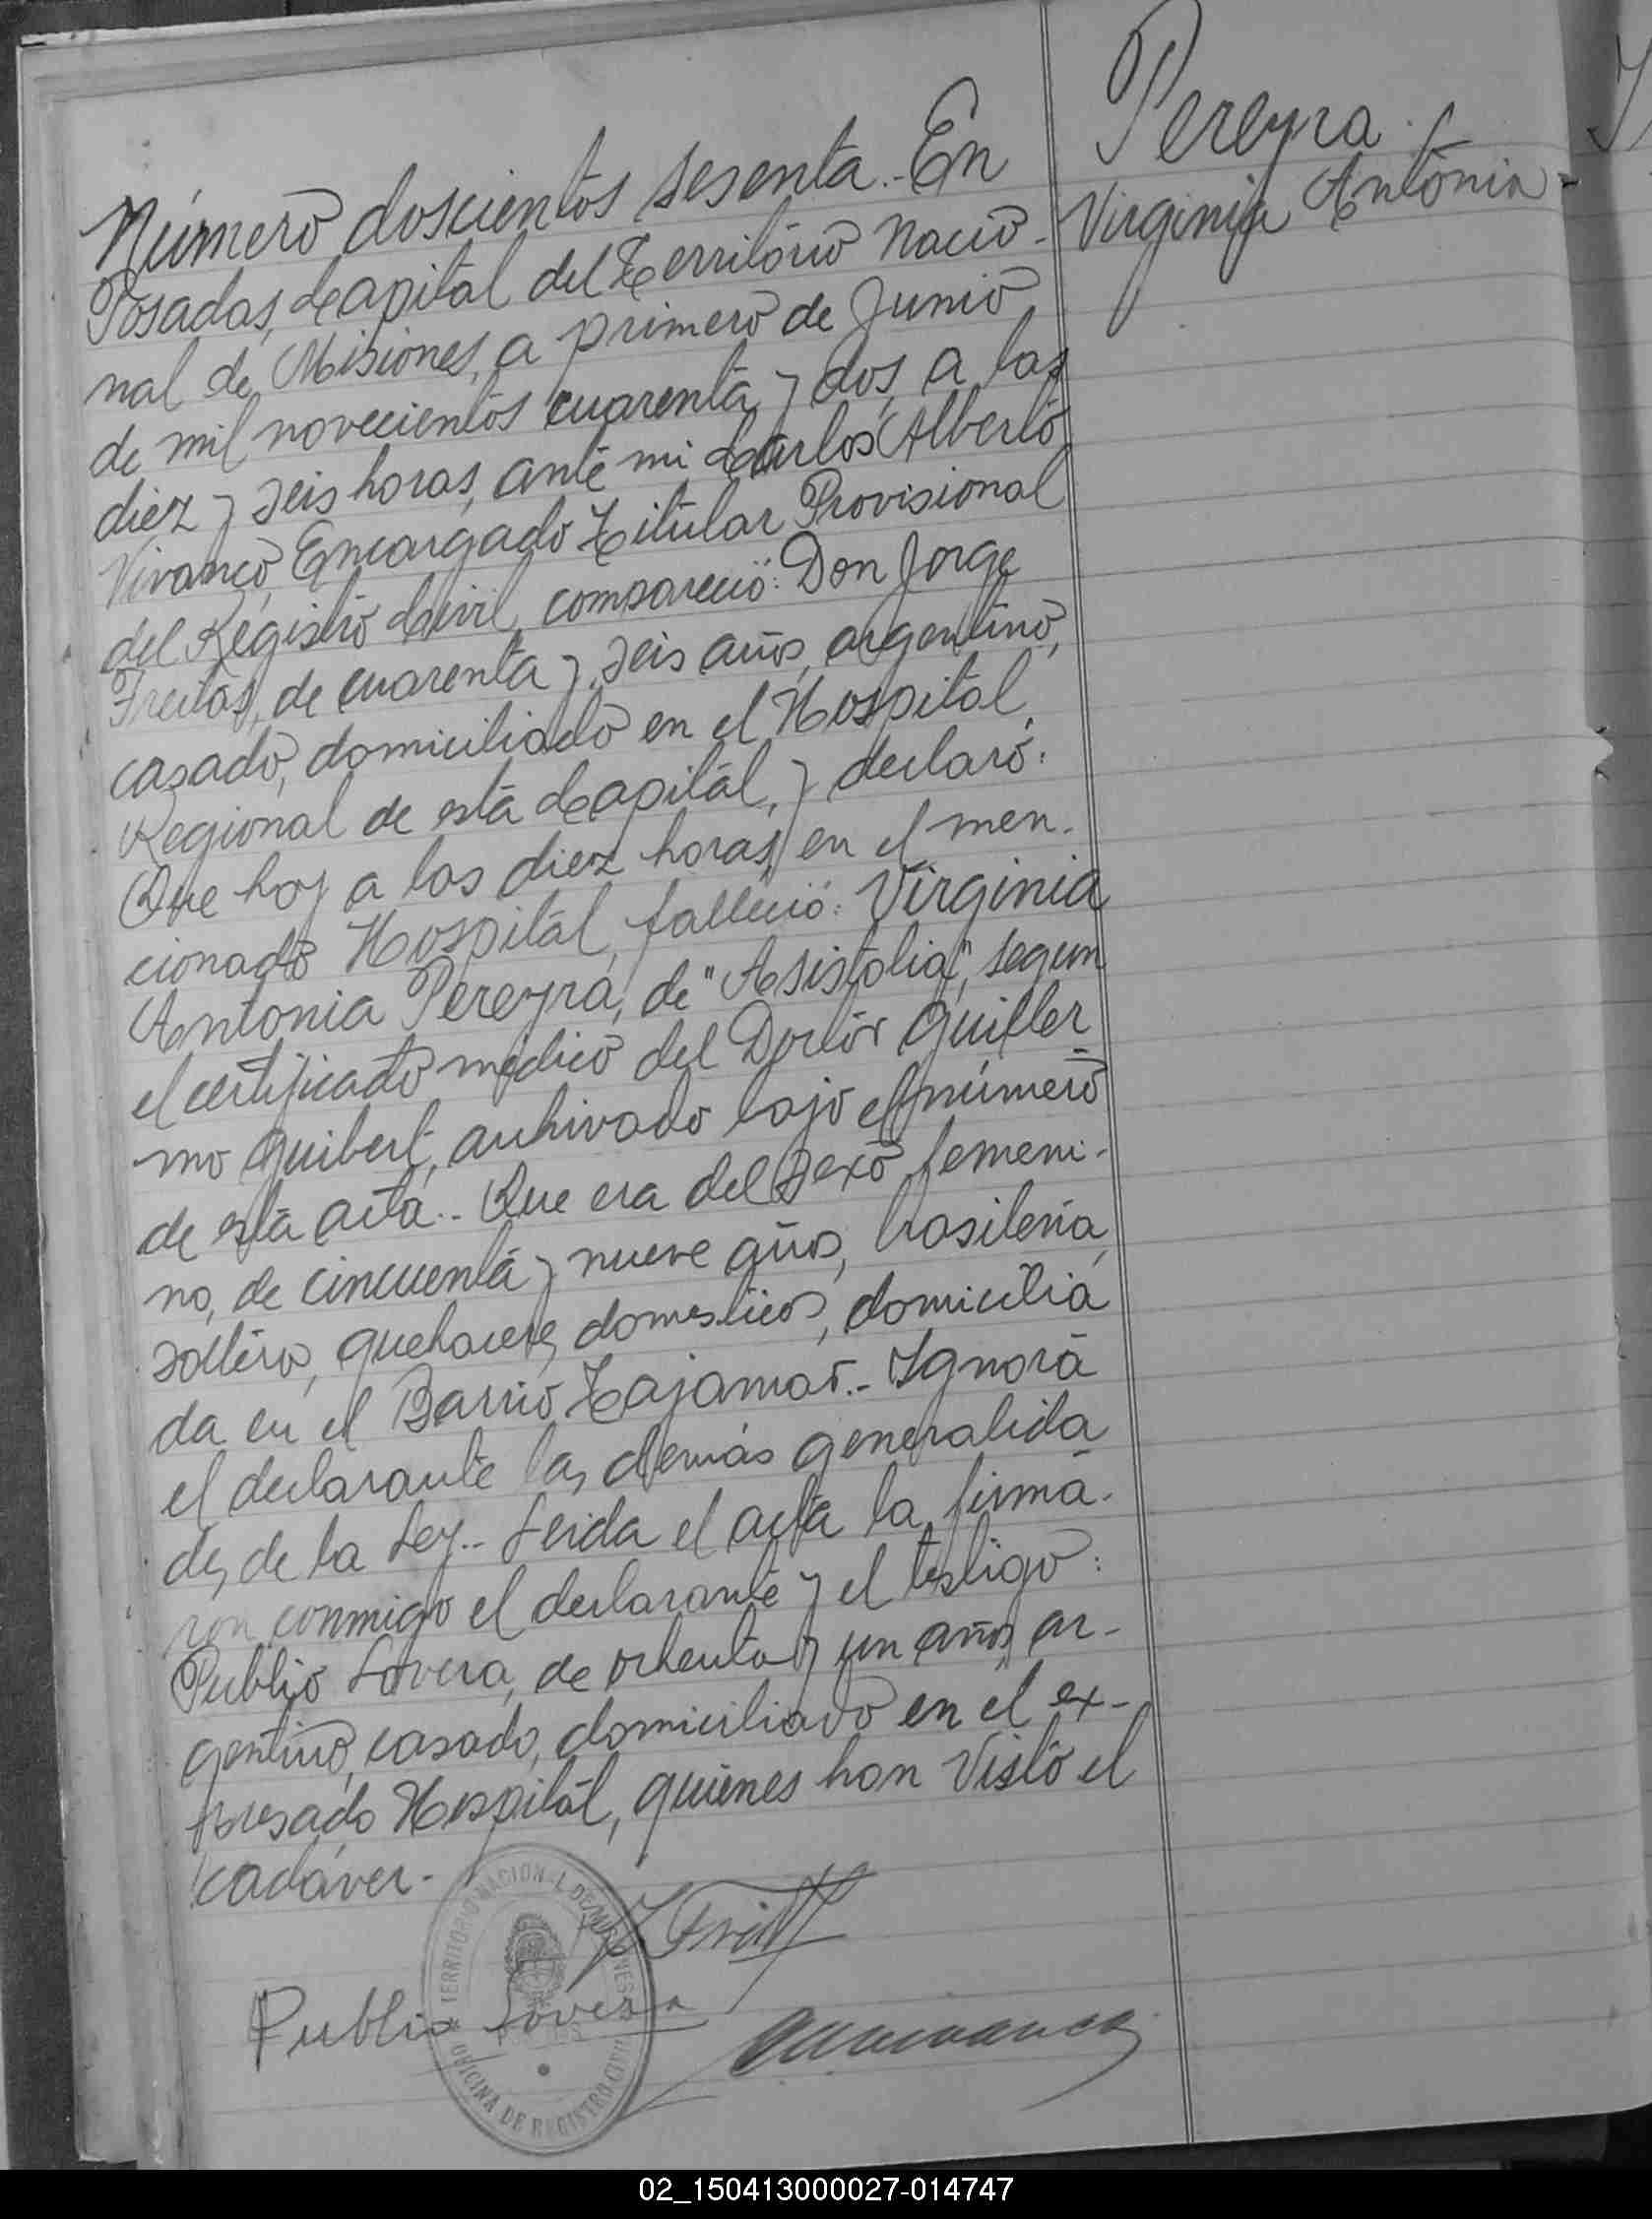 Pereyra
Virginia Antonia-
Número doscientos sesenta.- En
Posadas, Capital del Territorio Nacio-
nal de Misiones, a primero de Junio
de mil novecientos cuarenta y dos, a las
diez y seis horas, ante mi Carlos Alberto
Vivanco, Encargado Titular Provisional
del Registro Civil, compareció: Don Jorge
Freitas, de cuarenta y seis años, argentino,
casado, domiciliado en el Hospital
Regional de esta Capital, y declaró:
Que hoy a las diez horas, en el men-
cionado Hospital, falleció: Virginia
Antonia Pereyra, de "Asistolia", segun
el certificado médico del Doctor Guiller
mo Guibert, archivado bajo el número
de esta acta.- Que era del sexo femeni-
no, de cincuenta y nueve años, brasileña,
soltera, quehaceres domesticos, domicilia
da en el Barrio Tajamar.- Ignora
el declarante las demás generalida
des de la Ley.- Leida el acta la firma-
ron conmigo el declarante y el testigo:
Publio Lovera, de ochenta y un años, ar-
gentino, casado, domiciliado en el ex-
presado Hospital, quienes han visto el
cadáver-
Publio Lovera
TERRITORIO NACIONAL DE MISIONES
OFICINA DE REGISTRO CIVIL
02_150413000027-014747